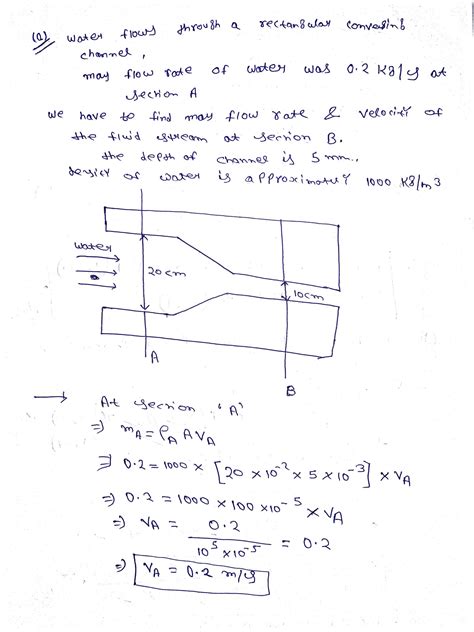 (Q) water flows through a rectangular converging
channel,
mass flow rate of water was 0.2 kg/s at
section A
we have to find mass flow rate & velocity of
the fluid stream at section B.
the depth of channel is 5 mm..
density of water is approximately 1000 kg/m3
water
20 cm
10cm
A
B
→ At section 'A'
⇒ mA = ρA A VA
⇒ 0.2 = 1000 × [20 × 10^-2 × 5 × 10^-3] × VA
⇒ 0.2 = 1000 × 100 × 10^-5 × VA
⇒ VA = 0.2 / 10^5 × 10^-5 = 0.2
⇒ VA = 0.2 m/s